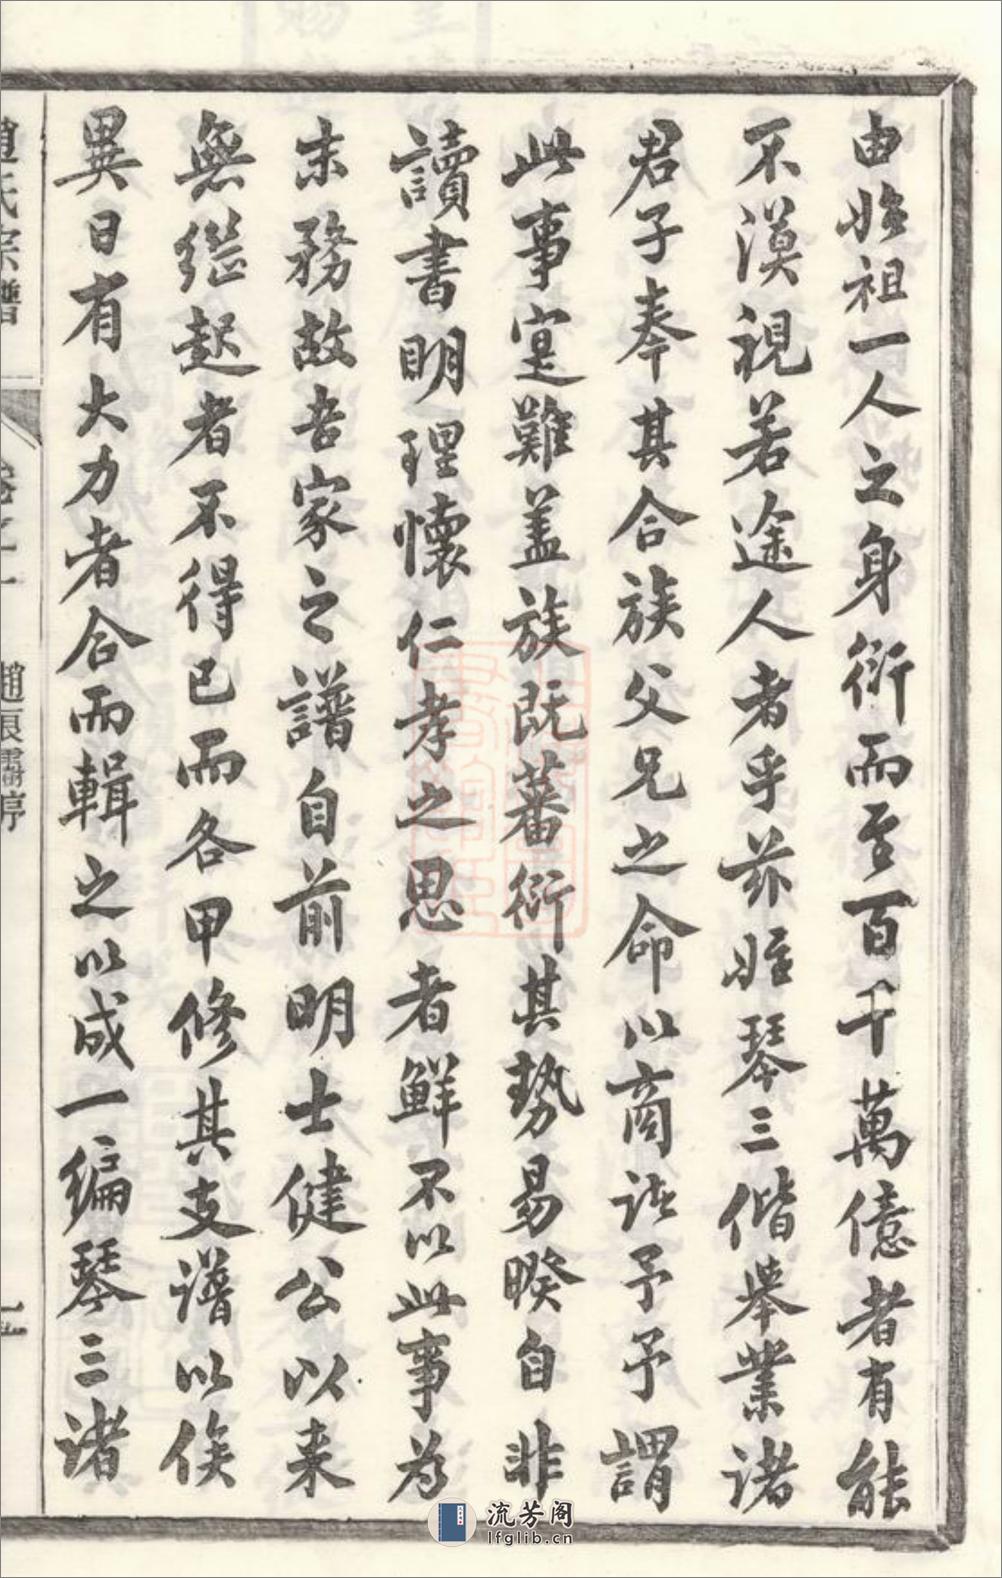 由始祖一人之身衍而至百千萬億者有能
不漠視若途人者乎茲姪琴三偕舉業諸
君子奉其合族父兄之命以商諸予予謂
此事寔難蓋族既蕃衍其勢易暌自非
讀書明理懷仁孝之思者鮮不以此事為
末務故吾家之譜自前明士健公以来
無继起者不得已而各甲修其支譜以俟
異日有大力者合而輯之以成一编琴三诸
趙氏宗譜 卷之一
流芳阁
lfglib.cn